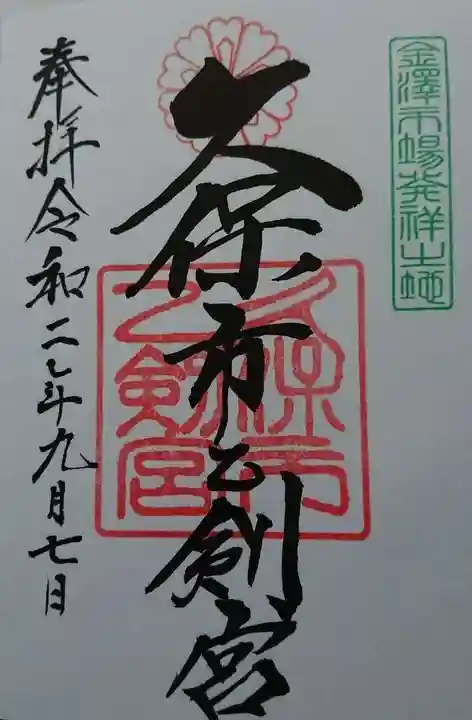 金澤市場発祥之地
久保市乙剣宮
久保市
乙剣宮
奉拝令和二年九月七日